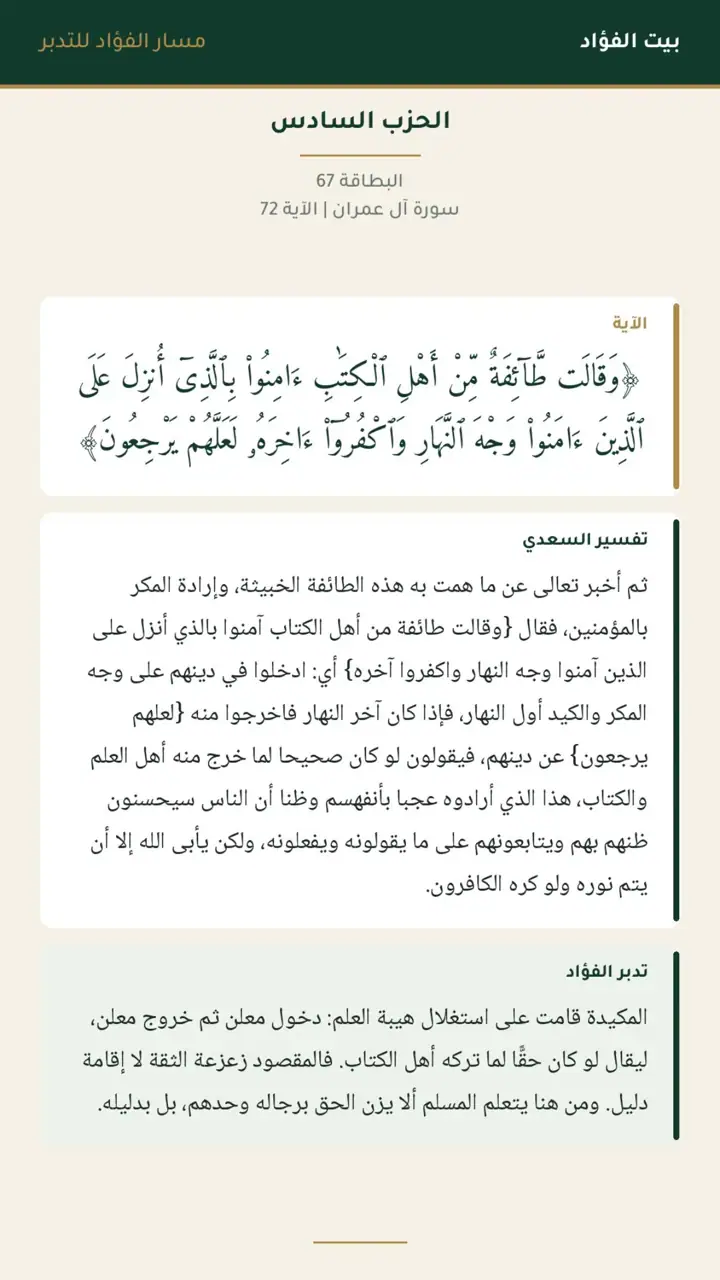 بيت الفؤاد
مسار الفؤاد للتدبر
الحزب السادس
البطاقة 67
سورة آل عمران | الآية 72
الآية
﴿وَقَالَت طَّآئِفَةٌ مِّنْ أَهْلِ ٱلْكِتَٰبِ ءَامِنُوا۟ بِٱلَّذِىٓ أُنزِلَ عَلَى
ٱلَّذِينَ ءَامَنُوا۟ وَجْهَ ٱلنَّهَارِ وَٱكْفُرُوٓا۟ ءَاخِرَهُۥ لَعَلَّهُمْ يَرْجِعُونَ﴾
تفسير السعدي
ثم أخبر تعالى عن ما همت به هذه الطائفة الخبيثة، وإرادة المكر
بالمؤمنين، فقال {وقالت طائفة من أهل الكتاب آمنوا بالذي أنزل على
الذين آمنوا وجه النهار واكفروا آخره} أي: ادخلوا في دينهم على وجه
المكر والكيد أول النهار، فإذا كان آخر النهار فاخرجوا منه {لعلهم
يرجعون} عن دينهم، فيقولون لو كان صحيحا لما خرج منه أهل العلم
والكتاب، هذا الذي أرادوه عجبا بأنفسهم وظنا أن الناس سيحسنون
ظنهم بهم ويتابعونهم على ما يقولونه ويفعلونه، ولكن يأبى الله إلا أن
يتم نوره ولو كره الكافرون.
تدبر الفؤاد
المكيدة قامت على استغلال هيبة العلم: دخول معلن ثم خروج معلن،
ليقال لو كان حقًّا لما تركه أهل الكتاب. فالمقصود زعزعة الثقة لا إقامة
دليل. ومن هنا يتعلم المسلم ألا يزن الحق برجاله وحدهم، بل بدليله.